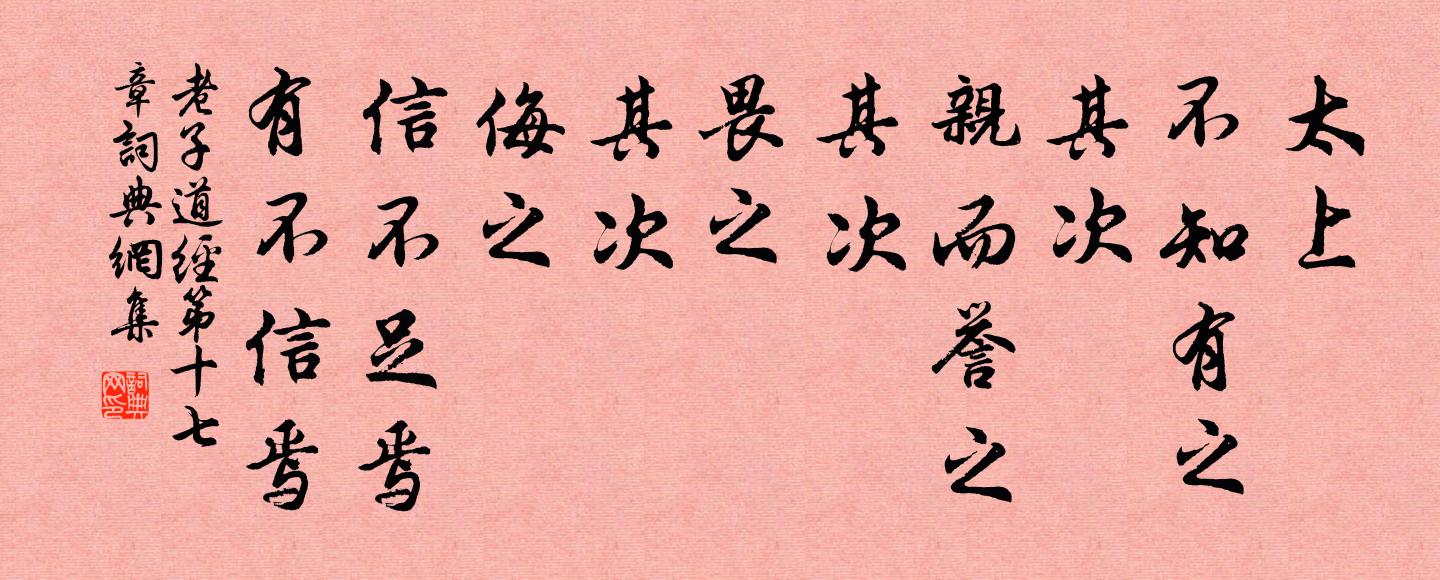 太上
不知有之
其次
親而誉之
其次
畏之
其次
侮之
信不足焉
有不信焉
老子道經第十七
章詞典網集
詞典
网印